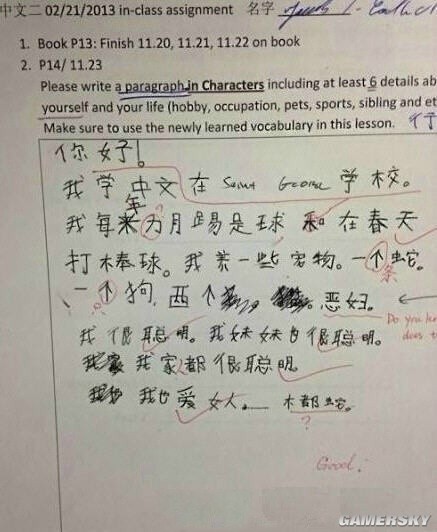 中文二 02/21/2013 in-class assignment 名字
1. Book P13: Finish 11.20, 11.21, 11.22 on book
2. P14/ 11.23
Please write a paragraph in Characters including at least 6 details ab
yourself and your life (hobby, occupation, pets, sports, sibling and et
Make sure to use the newly learned vocabulary in this lesson.
你好!
我学中文在 Saint George 学校。
我每年 月踢足球 和在春天
打棒球。我养一些宠物。一个蛇。
条
一个狗,西个 恶妇。
Do you kn
does t
我很聪明。我妹妹也很聪明。
我家都很聪明。
我也爱女人。 木都蛇。
?
Good!
GAMERSKY